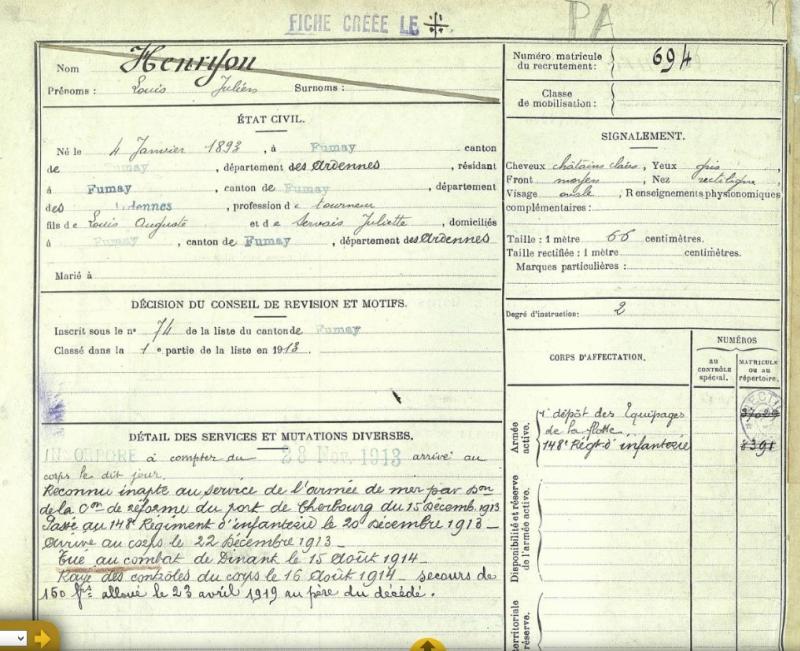 FICHE CRÉÉE LE
PA
Nom Henryon
Prénoms : Louis Julien Surnoms :
ÉTAT CIVIL.
Né le 4 Janvier 1893, à Fumay canton
de Fumay, département des Ardennes, résidant
à Fumay, canton de Fumay, département
des Ardennes, profession de tourneur
fils de Louis Auguste et de Servais Juliette, domiciliés
à Fumay, canton de Fumay, département des Ardennes
Marié à
DÉCISION DU CONSEIL DE REVISION ET MOTIFS.
Inscrit sous le nº 74 de la liste du canton de Fumay
Classé dans la 1e partie de la liste en 1913.
DÉTAIL DES SERVICES ET MUTATIONS DIVERSES.
INCORPORÉ à compter du 28 Nov. 1913 arrivé au
corps le dit jour.
Reconnu inapte au service de l'armée de mer par Don
de la Con de réforme du port de Cherbourg du 15 Décemb. 1913
Passé au 148e Régiment d'infanterie le 20 Décembre 1913 _
Arrivé au corps le 22 Décembre 1913 _
Tué au combat de Dinant le 15 Août 1914 _
Rayé des contrôles du corps le 16 Août 1914 _ secours de
150 frs alloué le 23 avril 1919 au père du décédé.
Numéro matricule
du recrutement : 694
Classe
de mobilisation :
SIGNALEMENT.
Cheveux châtains clairs, Yeux gris,
Front moyen, Nez rectiligne,
Visage ovale, Renseignements physionomiques
complémentaires :
Taille : 1 mètre 66 centimètres.
Taille rectifiée : 1 mètre centimètres.
Marques particulières :
Degré d'instruction : 2
CORPS D'AFFECTATION.
NUMÉROS
AU
CONTRÔLE
spécial.
MATRICULE
OU AU
répertoire.
Armée
active.
1er dépôt des Equipages
de la flotte
148e Régt d'infanterie
8391
Disponibilité et réserve
de l'armée active.
territoriale
réserve.